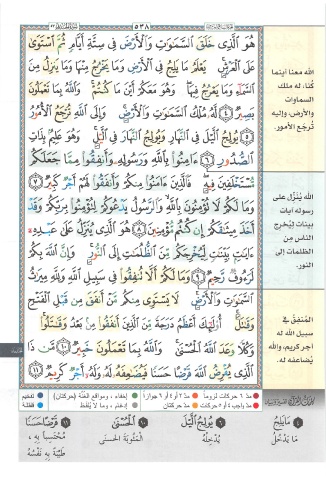 ٥٣٨
هُوَ ٱلَّذِى خَلَقَ ٱلسَّمَـٰوَٰتِ وَٱلْأَرْضَ فِى سِتَّةِ أَيَّامٍ ثُمَّ ٱسْتَوَىٰ
عَلَى ٱلْعَرْشِ ۚ يَعْلَمُ مَا يَلِجُ فِى ٱلْأَرْضِ وَمَا يَخْرُجُ مِنْهَا وَمَا يَنزِلُ مِنَ
ٱلسَّمَآءِ وَمَا يَعْرُجُ فِيهَا ۖ وَهُوَ مَعَكُمْ أَيْنَ مَا كُنتُمْ ۚ وَٱللَّهُ بِمَا تَعْمَلُونَ
بَصِيرٌ ﴿٤﴾ لَّهُۥ مُلْكُ ٱلسَّمَـٰوَٰتِ وَٱلْأَرْضِ ۚ وَإِلَى ٱللَّهِ تُرْجَعُ ٱلْأُمُورُ
﴿٥﴾ يُولِجُ ٱلَّيْلَ فِى ٱلنَّهَارِ وَيُولِجُ ٱلنَّهَارَ فِى ٱلَّيْلِ ۚ وَهُوَ عَلِيمٌۢ بِذَاتِ
ٱلصُّدُورِ ﴿٦﴾ ءَامِنُوا۟ بِٱللَّهِ وَرَسُولِهِۦ وَأَنفِقُوا۟ مِمَّا جَعَلَكُم
مُّسْتَخْلَفِينَ فِيهِ ۖ فَٱلَّذِينَ ءَامَنُوا۟ مِنكُمْ وَأَنفَقُوا۟ لَهُمْ أَجْرٌ كَبِيرٌ ﴿٧﴾
وَمَا لَكُمْ لَا تُؤْمِنُونَ بِٱللَّهِ ۙ وَٱلرَّسُولُ يَدْعُوكُمْ لِتُؤْمِنُوا۟ بِرَبِّكُمْ وَقَدْ
أَخَذَ مِيثَـٰقَكُمْ إِن كُنتُم مُّؤْمِنِينَ ﴿٨﴾ هُوَ ٱلَّذِى يُنَزِّلُ عَلَىٰ عَبْدِهِۦٓ
ءَايَـٰتٍۭ بَيِّنَـٰتٍ لِّيُخْرِجَكُم مِّنَ ٱلظُّلُمَـٰتِ إِلَى ٱلنُّورِ ۚ وَإِنَّ ٱللَّهَ بِكُمْ
لَرَءُوفٌ رَّحِيمٌ ﴿٩﴾ وَمَا لَكُمْ أَلَّا تُنفِقُوا۟ فِى سَبِيلِ ٱللَّهِ وَلِلَّهِ مِيرَٰثُ
ٱلسَّمَـٰوَٰتِ وَٱلْأَرْضِ ۚ لَا يَسْتَوِى مِنكُم مَّنْ أَنفَقَ مِن قَبْلِ ٱلْفَتْحِ
وَقَـٰتَلَ ۚ أُو۟لَـٰٓئِكَ أَعْظَمُ دَرَجَةً مِّنَ ٱلَّذِينَ أَنفَقُوا۟ مِنۢ بَعْدُ وَقَـٰتَلُوا۟ ۚ
وَكُلًّا وَعَدَ ٱللَّهُ ٱلْحُسْنَىٰ ۚ وَٱللَّهُ بِمَا تَعْمَلُونَ خَبِيرٌ ﴿١٠﴾ مَّن ذَا
ٱلَّذِى يُقْرِضُ ٱللَّهَ قَرْضًا حَسَنًا فَيُضَـٰعِفَهُۥ لَهُۥ وَلَهُۥٓ أَجْرٌ كَرِيمٌ ﴿١١﴾
الله معنا أينما
كنّا، له ملك
السماوات
والأرض، وإليه
تُرجَع الأمور.
الله يُنَزِّل على
رسوله آيات
بينات ليُخرج
الناس من
الظلمات إلى
النور.
المُنفِق في
سبيل الله له
أجر كريم، والله
يُضاعفه له.
مدّ ٦ حركات لزوماً
مدّ ٢ أو ٤ أو ٦ جوازاً
إخفاء، ومواقع الغُنَّة (حركتان)
تفخيم
مدّ واجب ٤ أو ٥ حركات
مدّ حركتان
إدغام، وما لا يُلفَظ
قلقلة
٤ مَا يَلِجُ
مَا يَدْخُلُ
٦ يُولِجُ ٱلَّيْلَ
يُدْخِلُهُ
١٠ ٱلْحُسْنَىٰ
المَثُوبَةَ الحُسْنَى
١١ قَرْضًا حَسَنًا
مُحْتَسِباً بِهِ،
طَيِّبَةً بِهِ نَفْسُهُ